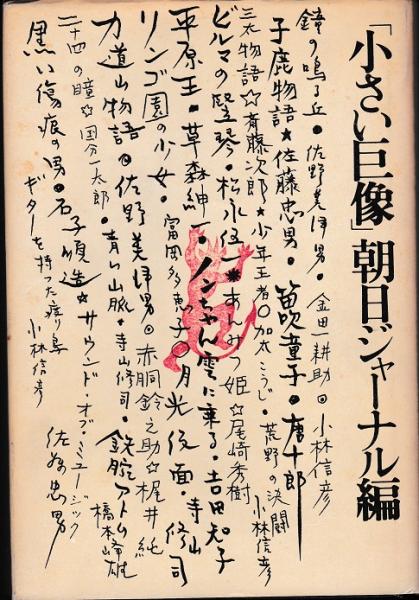 「小さい巨像」朝日ジャーナル編
鐘の鳴る丘●佐野美津男●金田耕助○小林信彦
子鹿物語★佐藤忠男●笛吹童子●唐十郎
三太物語☆斉藤次郎★少年王者○加太こうじ●荒野の決闘
小林信彦
ビルマの竪琴●松永伍一★あんみつ姫☆尾崎秀樹
平原王●草森紳一●ノンちゃん雲に乗る●吉田知子
リンゴ園の少女●富岡多恵子○月光仮面●寺山修司
力道山物語●佐野美津男○赤胴鈴之助☆梶井純
二十四の瞳☆国分一太郎●青い山脈★寺山修司●鉄腕アトム●橋本峰雄
黒い傷痕の男●石子順造★サウンド・オブ・ミュージック
佐藤忠男
ギターを持った渡り鳥 小林信彦